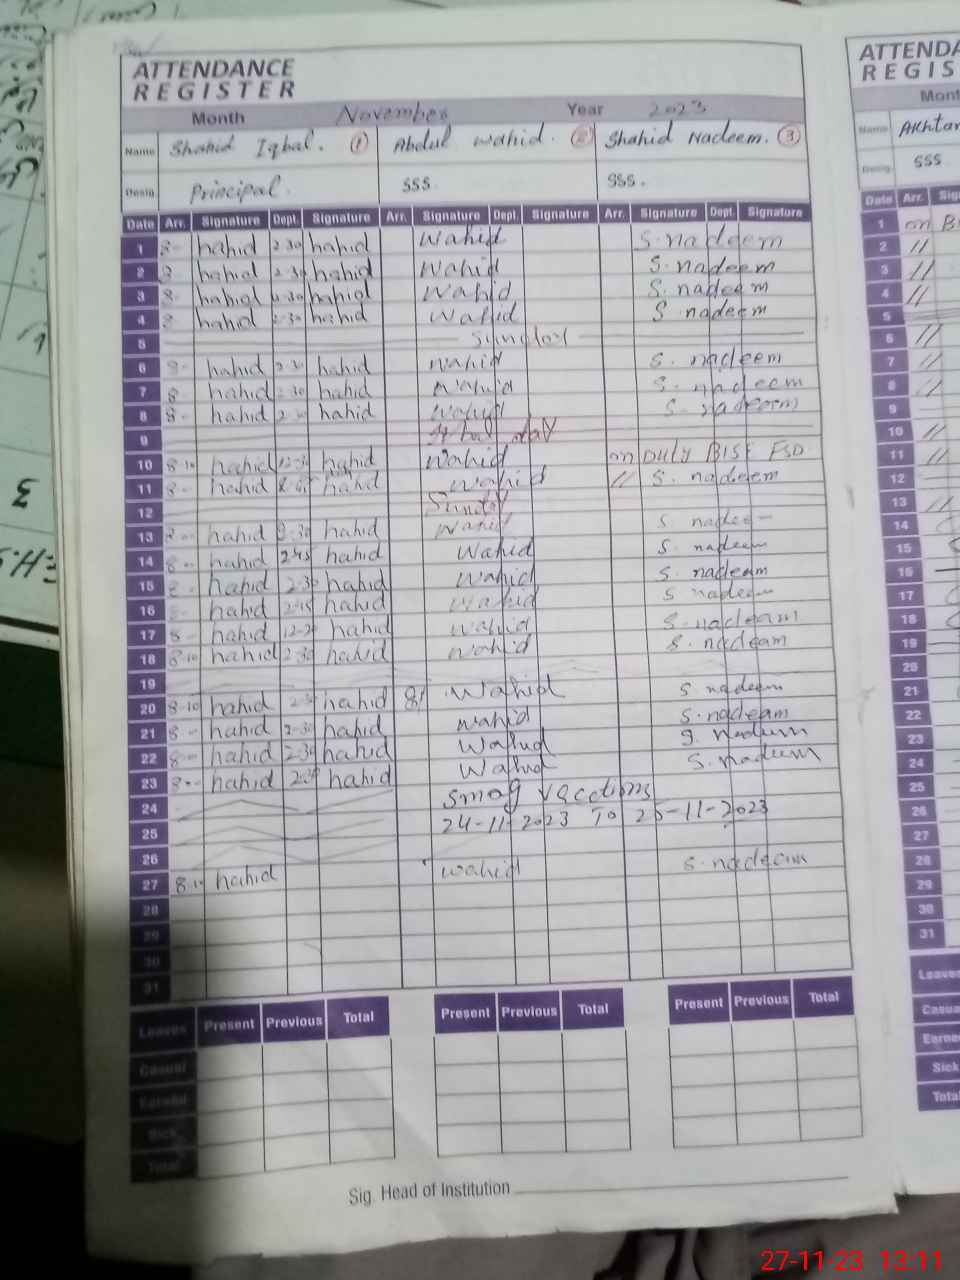 ATTENDANCE
REGISTER
Month November Year 2023
Name Shahid Iqbal. ① Abdul wahid. ② Shahid Nadeem. ③
Desig. Principal. SSS. SSS.
Date Arr. Signature Dept. Signature Arr. Signature Dept. Signature Arr. Signature Dept. Signature
1 8- hahid 2-30 hahid wahid S. nadeem
2 8 hahid 2-30 hahid wahid S. nadeem
3 8- hahid 2-30 hahid wahid S. nadeem
4 8 hahid 2-30 hahid wahid S nadeem
5 Sunday
6 8- hahid 2-30 hahid wahid S. nadeem
7 8- hahid 2-30 hahid wahid S. nadeem
8 8- hahid 2-30 hahid wahid S. nadeem
9 day
10 8-10 hahid 12-30 hahid wahid on Duty BISE FSD.
11 8- hahid hahid wahid // S. nadeem
12 Sunday
13 8-- hahid 2-30 hahid wahid S. nadee-
14 8-- hahid 2-45 hahid wahid S. nadeem
15 8- hahid 2-30 hahid wahid S. nadeem
16 8- hahid 2-45 hahid wahid S nadeem
17 8- hahid 12-30 hahid wahid S. nadeem
18 8-10 hahid 2-30 hahid wahid S. nadeem
19
20 8-10 hahid 2-30 hahid wahid S nadeem
21 8-- hahid 2-30 hahid wahid S. nadeem
22 8-- hahid 2-30 hahid wahid S. nadeem
23 8-- hahid 2-30 hahid wahid S. nadeem
24 Smog vacctions
25 24-11-2023 To 25-11-2023
26
27 8-10 hahid wahid S. nadeem
28
29
30
31
Leaves Present Previous Total Present Previous Total Present Previous Total
Casual
Earned
Sick
Total
Sig. Head of Institution
ATTENDA
REGIS
Mont
Name Akhtar
Desig. SSS
Date Arr. Sig
1 on B
2 //
3 //
4 //
5
6 //
7 //
8 //
9
10 //
11 //
12
13 //
14
15
16
17
18
19
20
21
22
23
24
25
26
27
28
29
30
31
Leaves
Casua
Earne
Sick
Total
27-11-23 13:11